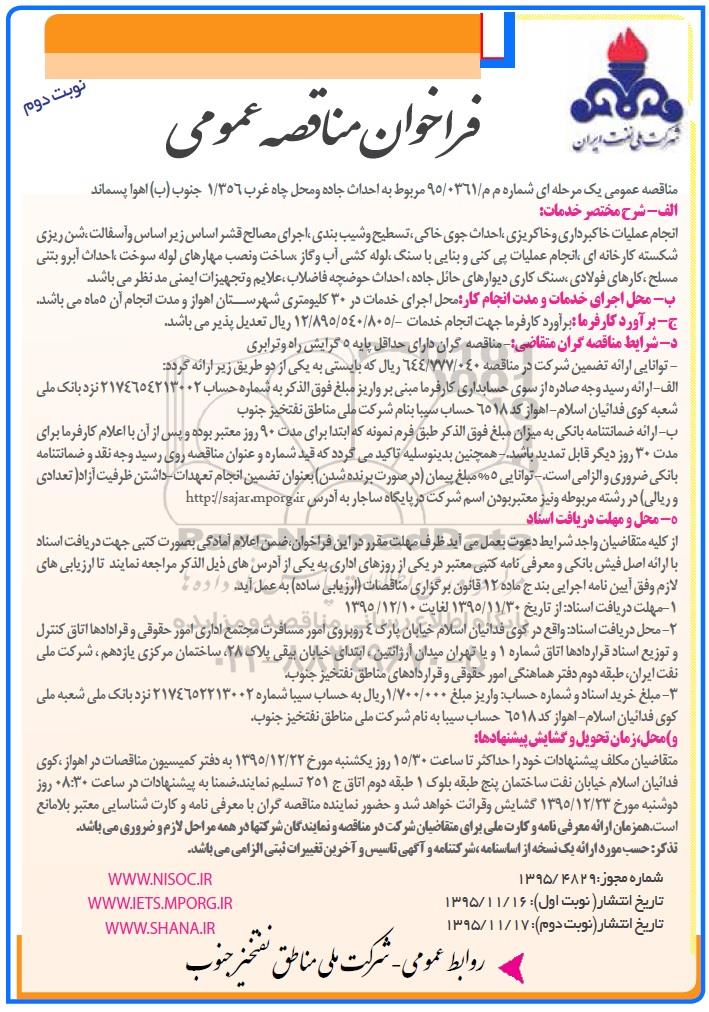 نوبت دوم
شرکت ملی نفت ایران
فراخوان مناقصه عمومی
مناقصه عمومی یک مرحله ای شماره م م/۹۵/۰۳۶۱ مربوط به احداث جاده ومحل چاه غرب ۱/۳۵۶ جنوب (ب) اهوا پسماند
الف- شرح مختصر خدمات:
انجام عملیات خاکبرداری وخاکریزی ،احداث جوی خاکی ،تسطیح وشیب بندی ،اجرای مصالح قشر اساس زیر اساس وآسفالت ،شن ریزی
شکسته کارخانه ای ،انجام عملیات پی کنی و بنایی با سنگ ،لوله کشی آب وگاز ،ساخت ونصب مهارهای لوله سوخت ،احداث آبرو بتنی
مسلح ،کارهای فولادی ،سنگ کاری دیوارهای حائل جاده ، احداث حوضچه فاضلاب ،علایم وتجهیزات ایمنی مد نظر می باشد.
ب- محل اجرای خدمات و مدت انجام کار: محل اجرای خدمات در ۳۰ کلیومتری شهرستان اهواز و مدت انجام آن ۵ماه می باشد.
ج- برآورد کارفرما: برآورد کارفرما جهت انجام خدمات -/۱۲/۸۹۵/۵۴۰/۸۰۵ ریال تعدیل پذیر می باشد.
د- شرایط مناقصه گران متقاضی:- مناقصه گران دارای حداقل پایه ۵ گرایش راه وترابری
- توانایی ارائه تضمین شرکت در مناقصه ۶۴۴/۷۷۷/۰۴۰ ریال که بایستی به یکی از دو طریق زیر ارائه گردد:
الف- ارائه رسید وجه صادره از سوی حسابداری کارفرما مبنی بر واریز مبلغ فوق الذکر به شماره حساب ۲۱۷۴۶۵۴۲۱۳۰۰۲ نزد بانک ملی
شعبه کوی فدائیان اسلام- اهواز کد ۶۵۱۸ حساب سیبا بنام شرکت ملی مناطق نفتخیز جنوب
ب- ارائه ضمانتنامه بانکی به میزان مبلغ فوق الذکر طبق فرم نمونه که ابتدا برای مدت ۹۰ روز معتبر بوده و پس از آن با اعلام کارفرما برای
مدت ۳۰ روز دیگر قابل تمدید باشد.- همچنین بدینوسیله تاکید می گردد که قید شماره و عنوان مناقصه روی رسید وجه نقد و ضمانتنامه
بانکی ضروری و الزامی است.- توانایی ۵% مبلغ پیمان (در صورت برنده شدن) بعنوان تضمین انجام تعهدات- داشتن ظرفیت آزاد( تعدادی
و ریالی) در رشته مربوطه ونیز معتبربودن اسم شرکت در پایگاه ساجار به آدرس http://sajar.mporg.ir
ه- محل و مهلت دریافت اسناد
از کلیه متقاضیان واجد شرایط دعوت بعمل می آید ظرف مهلت مقرر در این فراخوان ،ضمن اعلام آمادگی بصورت کتبی جهت دریافت اسناد
با ارائه اصل فیش بانکی و معرفی نامه کتبی معتبر در یکی از روزهای اداری به یکی از آدرس های ذیل الذکر مراجعه نمایند تا ارزیابی های
لازم وفق آیین نامه اجرایی بند ج ماده ۱۲ قانون برگزاری مناقصات (ارزیابی ساده) به عمل آید.
۱-مهلت دریافت اسناد: از تاریخ ۱۳۹۵/۱۱/۳۰ لغایت ۱۳۹۵/۱۲/۱۰
۲- محل دریافت اسناد: واقع در کوی فدائیان اسلام خیابان پارک ۴ روبروی امور مسافرت مجتمع اداری امور حقوقی و قرادادها اتاق کنترل
و توزیع اسناد قراردادها اتاق شماره ۱ و یا تهران میدان آرژانتین ، ابتدای خیابان بیهقی پلاک ۲۸، ساختمان مرکزی یازدهم ، شرکت ملی
نفت ایران، طبقه دوم دفتر هماهنگی امور حقوقی و قراردادهای مناطق نفتخیز جنوب.
۳- مبلغ خرید اسناد و شماره حساب: واریز مبلغ ۱/۷۰۰/۰۰۰ریال به حساب سیبا شماره ۲۱۷۴۶۵۲۲۱۳۰۰۲ نزد بانک ملی شعبه ملی
کوی فدائیان اسلام- اهواز کد ۶۵۱۸ حساب سیبا به نام شرکت ملی مناطق نفتخیز جنوب.
و)محل،زمان تحویل و گشایش پیشنهادها:
متقاضیان مکلف پیشنهادات خود را حداکثر تا ساعت ۱۵/۳۰ روز یکشنبه مورخ ۱۳۹۵/۱۲/۲۲ به دفتر کمیسیون مناقصات در اهواز ،کوی
فدائیان اسلام خیابان نفت ساختمان پنج طبقه بلوک ۱ طبقه دوم اتاق ج ۲۵۱ تسلیم نمایند.ضمنا به پیشنهادات در ساعت ۰۸:۳۰ روز
دوشنبه مورخ ۱۳۹۵/۱۲/۲۳ گشایش وقرائت خواهد شد و حضور نماینده مناقصه گران با معرفی نامه و کارت شناسایی معتبر بلامانع
است.همزمان ارائه معرفی نامه و کارت ملی برای متقاضیان شرکت در مناقصه و نمایندگان شرکتها در همه مراحل لازم و ضروری می باشد.
تذکر: حسب مورد ارائه یک نسخه از اساسنامه ،شرکتنامه و آگهی تاسیس و آخرین تغییرات ثبتی الزامی می باشد.
شماره مجوز: ۱۳۹۵/۴۸۲۹
WWW.NISOC.IR
تاریخ انتشار( نوبت اول): ۱۳۹۵/۱۱/۱۶
WWW.IETS.MPORG.IR
تاریخ انتشار(نوبت دوم): ۱۳۹۵/۱۱/۱۷
WWW.SHANA.IR
روابط عمومی - شرکت ملی مناطق نفتخیز جنوب
ParsNamadData
پایگاه اطلاع رسانی مناقصه و مزایده
۰۲۱-۸۸۳۴۹۶۷۰-۵